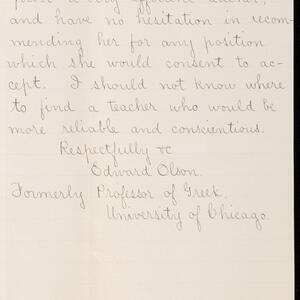 a very efficient teacher,
and have no hesitation in recom-
mending her for any position
which she would consent to ac-
cept. I should not know where
to find a teacher who would be
more reliable and conscientious.
Respectfully &c
Edward Olson.
Formerly Professor of Greek.
University of Chicago.